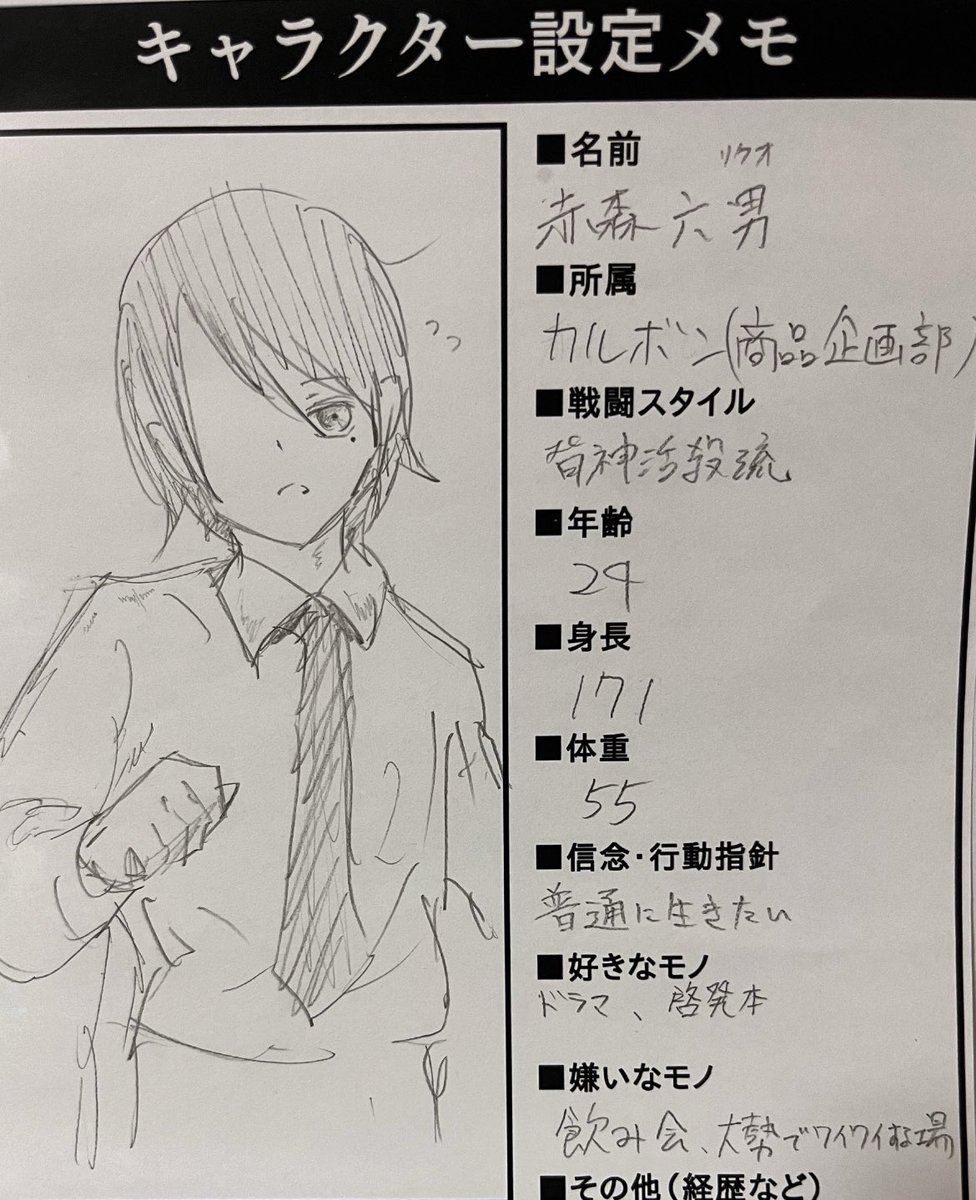 キャラクター設定メモ
■名前
リクオ
赤森六男
■所属
カルボン(商品企画部)
■戦闘スタイル
神活殺流
■年齢
24
■身長
171
■体重
55
■信念・行動指針
普通に生きたい
■好きなモノ
ドラマ、啓発本
■嫌いなモノ
飲み会、大勢でワイワイする場
■その他(経歴など)